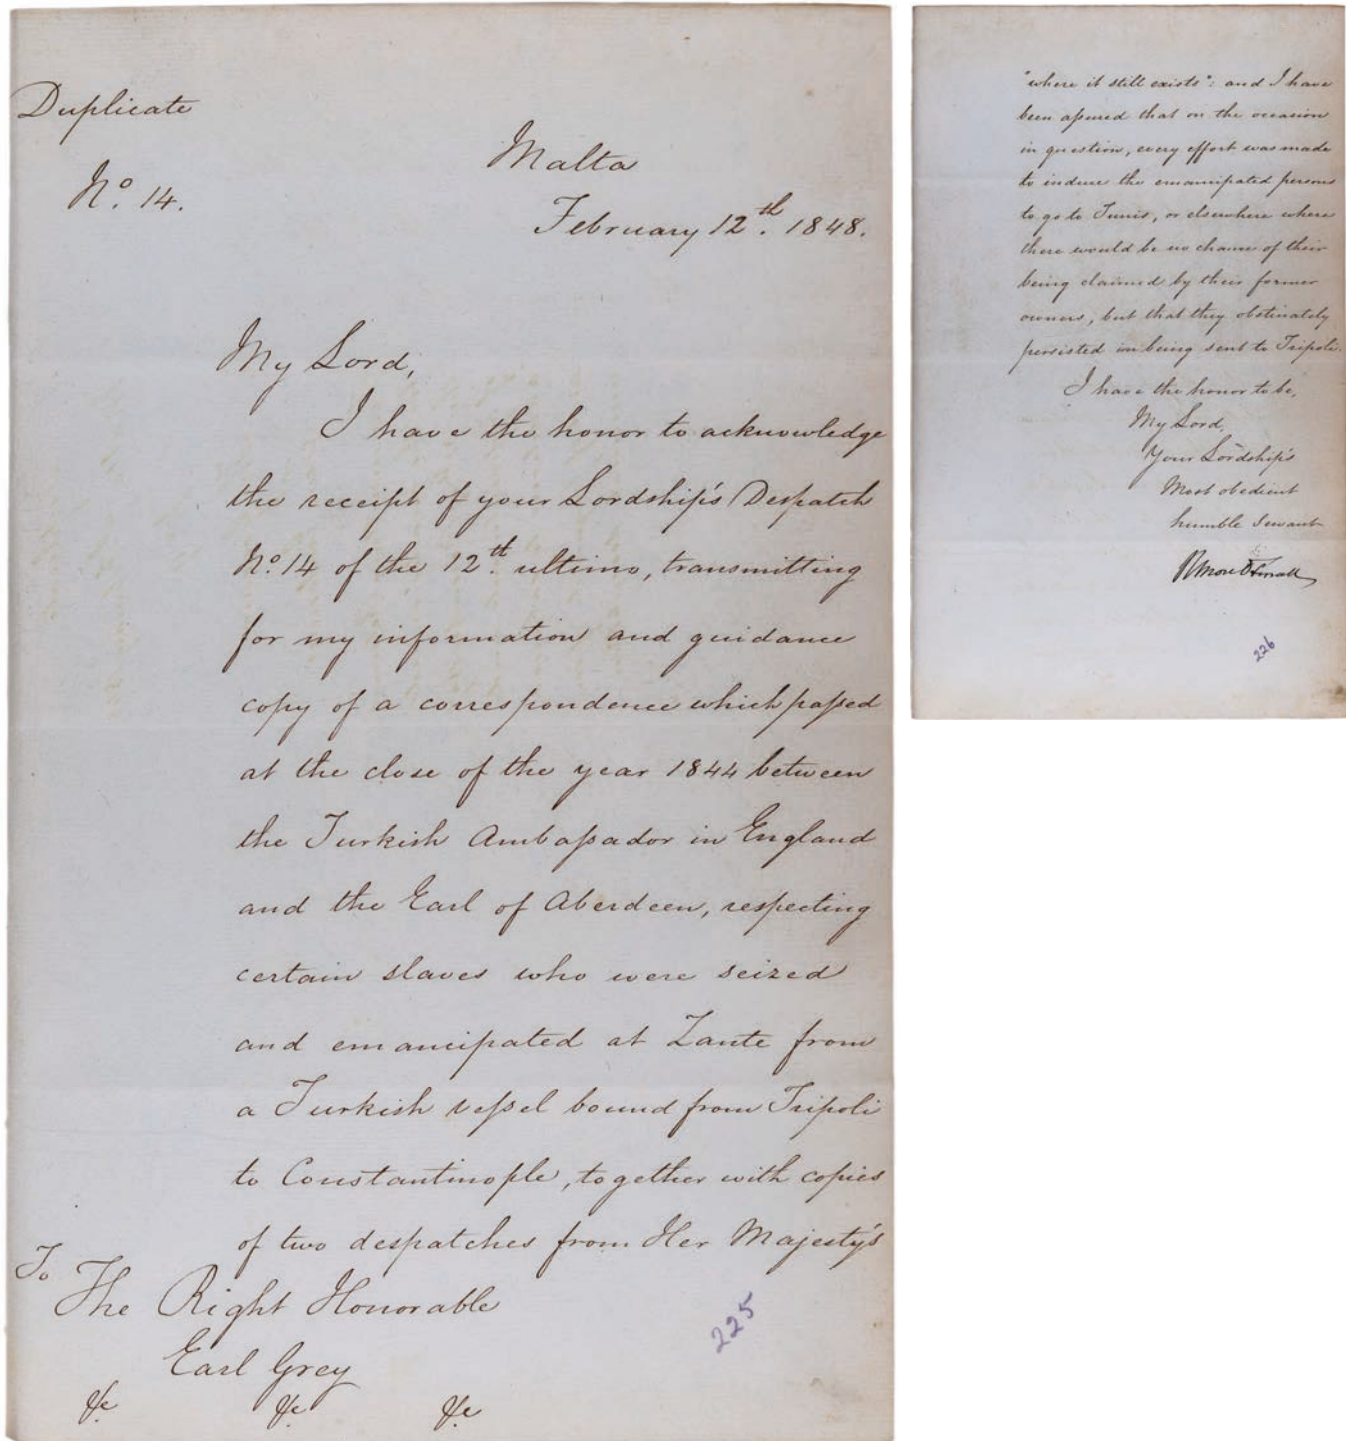 Duplicate
Nº. 14.
Malta
February 12th. 1848.
My Lord,
I have the honor to acknowledge
the receipt of your Lordship's Despatch
Nº. 14 of the 12th. ultimo, transmitting
for my information and guidance
copy of a correspondence which passed
at the close of the year 1844 between
the Turkish Ambassador in England
and the Earl of Aberdeen, respecting
certain slaves who were seized
and emancipated at Zante from
a Turkish vessel bound from Tripoli
to Constantinople, together with copies
of two despatches from Her Majesty's
To
The Right Honorable
Earl Grey
&c &c &c
225
"where it still exists": and I have
been assured that on the occasion
in question, every effort was made
to induce the emancipated persons
to go to Tunis, or elsewhere where
there would be no chance of their
being claimed by their former
owners, but that they obstinately
persisted in being sent to Tripoli.
I have the honor to be,
My Lord,
Your Lordship's
Most obedient
humble Servant
226